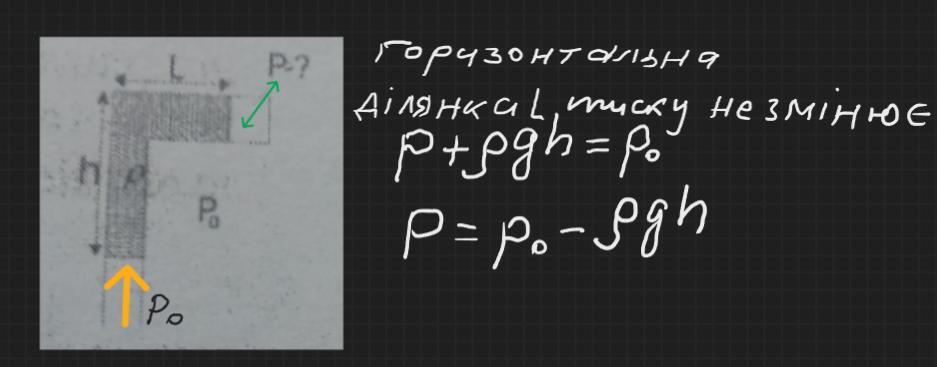 L
P-?
h
ρ
P₀
P₀
Горизонтальна
ділянка L тиску не змінює
p+ρgh=p₀
P=p₀-ρgh